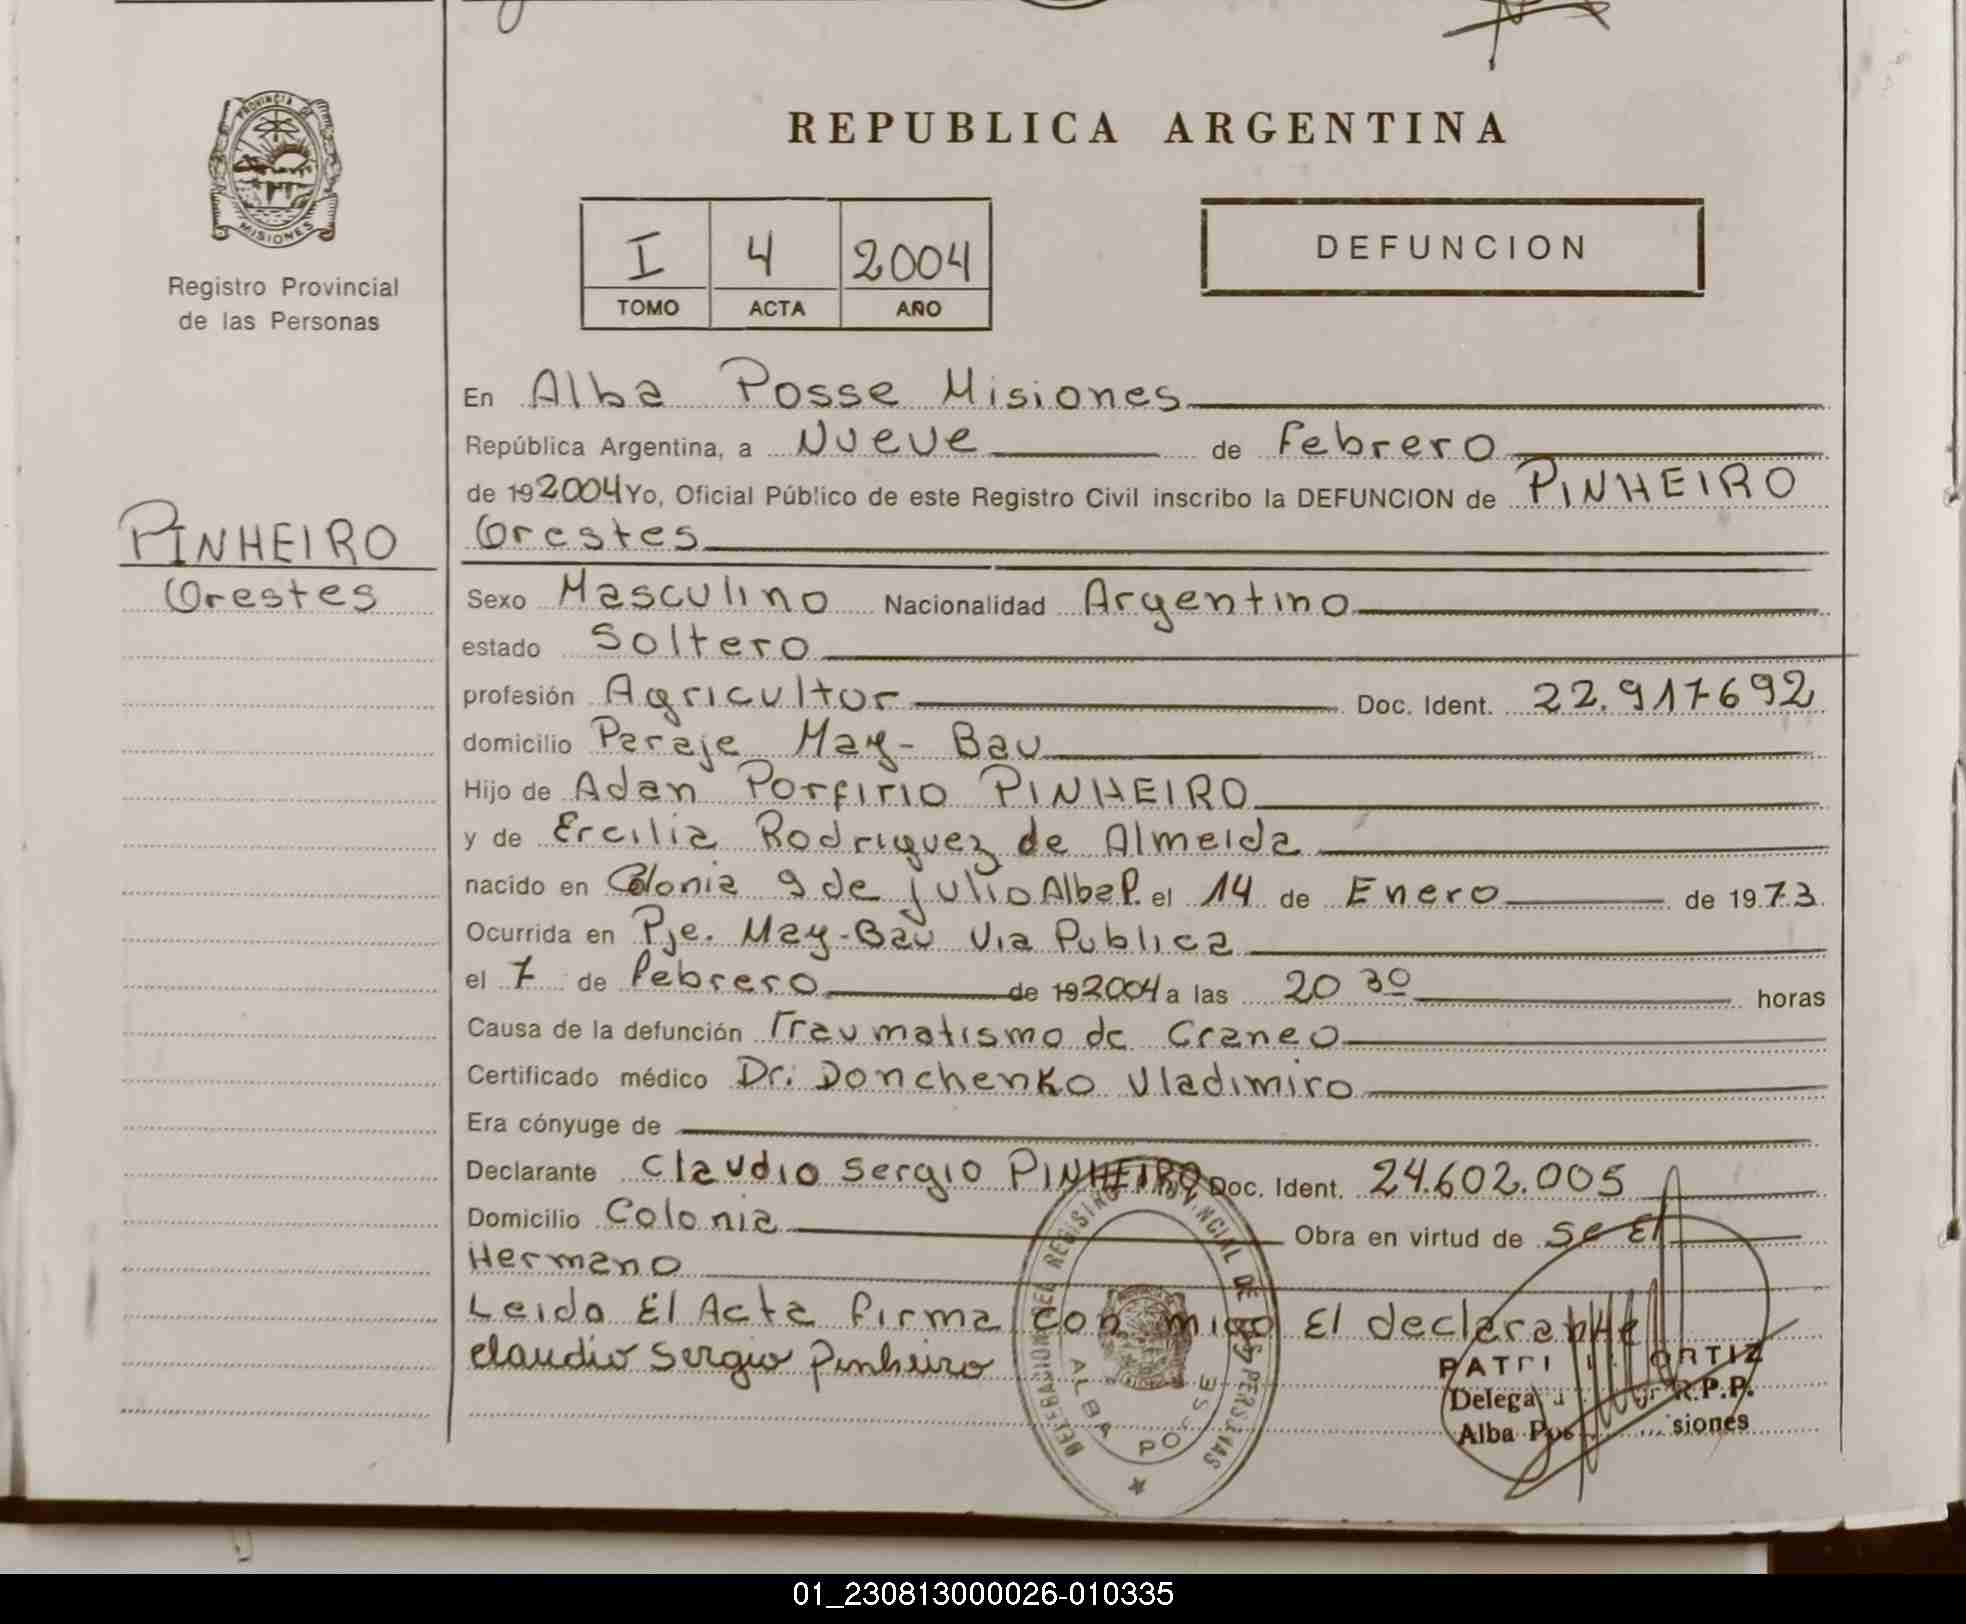 PROVINCIA DE
MISIONES
Registro Provincial
de las Personas
REPUBLICA ARGENTINA
I 4 2004
TOMO ACTA AÑO
DEFUNCION
En Alba Posse Misiones
República Argentina, a Nueve de Febrero
de 192004 Yo, Oficial Público de este Registro Civil inscribo la DEFUNCION de PINHEIRO
Orestes
PINHEIRO
Orestes
Sexo Masculino Nacionalidad Argentino
estado Soltero
profesión Agricultor Doc. Ident. 22.917692
domicilio Paraje May-Bau
Hijo de Adan Porfirio PINHEIRO
y de Ercilia Rodriguez de Almeida
nacido en Colonia 9 de julio Alba P. el 14 de Enero de 1973
Ocurrida en Pje. May-Bau Via Publica
el 7 de Febrero de 192004 a las 20 30 horas
Causa de la defunción Traumatismo de Craneo
Certificado médico Dr. Donchenko Vladimiro
Era cónyuge de
Declarante Claudio Sergio PINHEIRO Doc. Ident. 24.602.005
Domicilio Colonia Obra en virtud de Se El
Hermano
Leido El Acta firma con migo El declarante
Claudio Sergio Pinheiro
REGISTRO PROVINCIAL DE LAS PERSONAS
ALBA POSSE
ORTIZ
R.P.P.
Alba
01_230813000026-010335